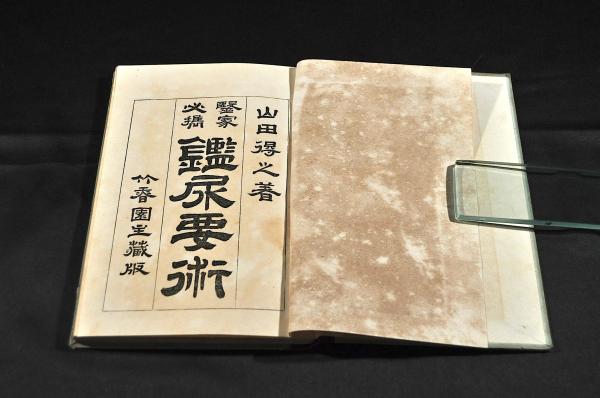 山田得之著
醫家
必携
鑑尿要術
竹香園主藏版